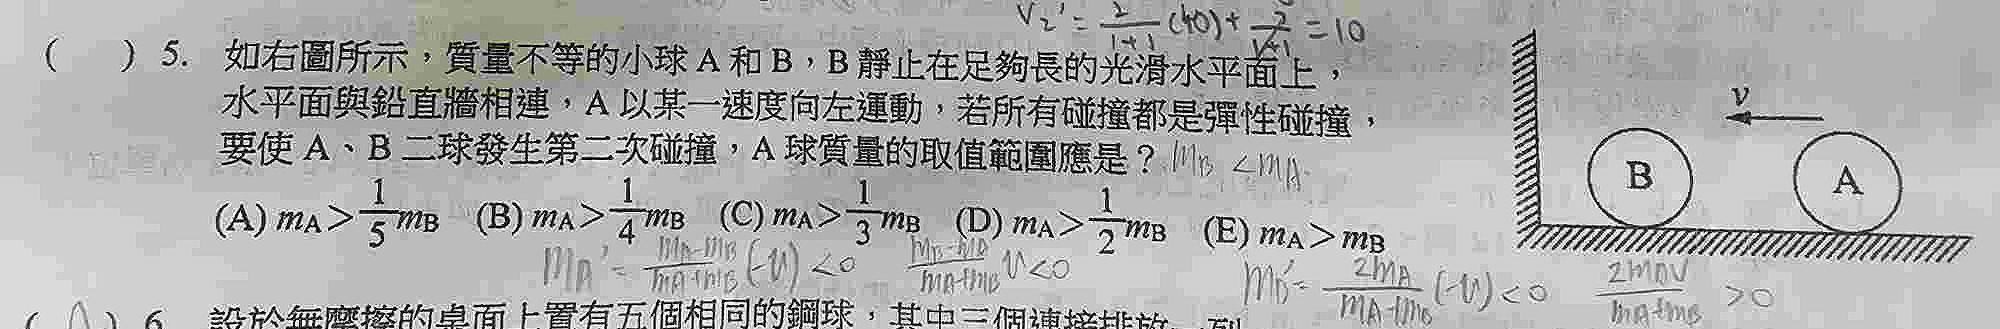 V₂' = 2/(1+1) (40) + 2/(1+1) = 10
( ) 5. 如右圖所示，質量不等的小球 A 和 B，B 靜止在足夠長的光滑水平面上，
水平面與鉛直牆相連，A 以某一速度向左運動，若所有碰撞都是彈性碰撞，
要使 A、B 二球發生第二次碰撞，A 球質量的取值範圍應是？ mB < mA.
(A) mA > 1/5 mB (B) mA > 1/4 mB (C) mA > 1/3 mB (D) mA > 1/2 mB (E) mA > mB
mA' = (mA-mB)/(mA+mB) (-v) < 0 (mB-mA)/(mA+mB) v < 0 mB' = 2mA/(mA+mB) (-v) < 0 2mAv/(mA+mB) > 0
v
B
A
( ) 6. 設於無摩擦的桌面上置有五個相同的鋼球，其中三個連接排放一列